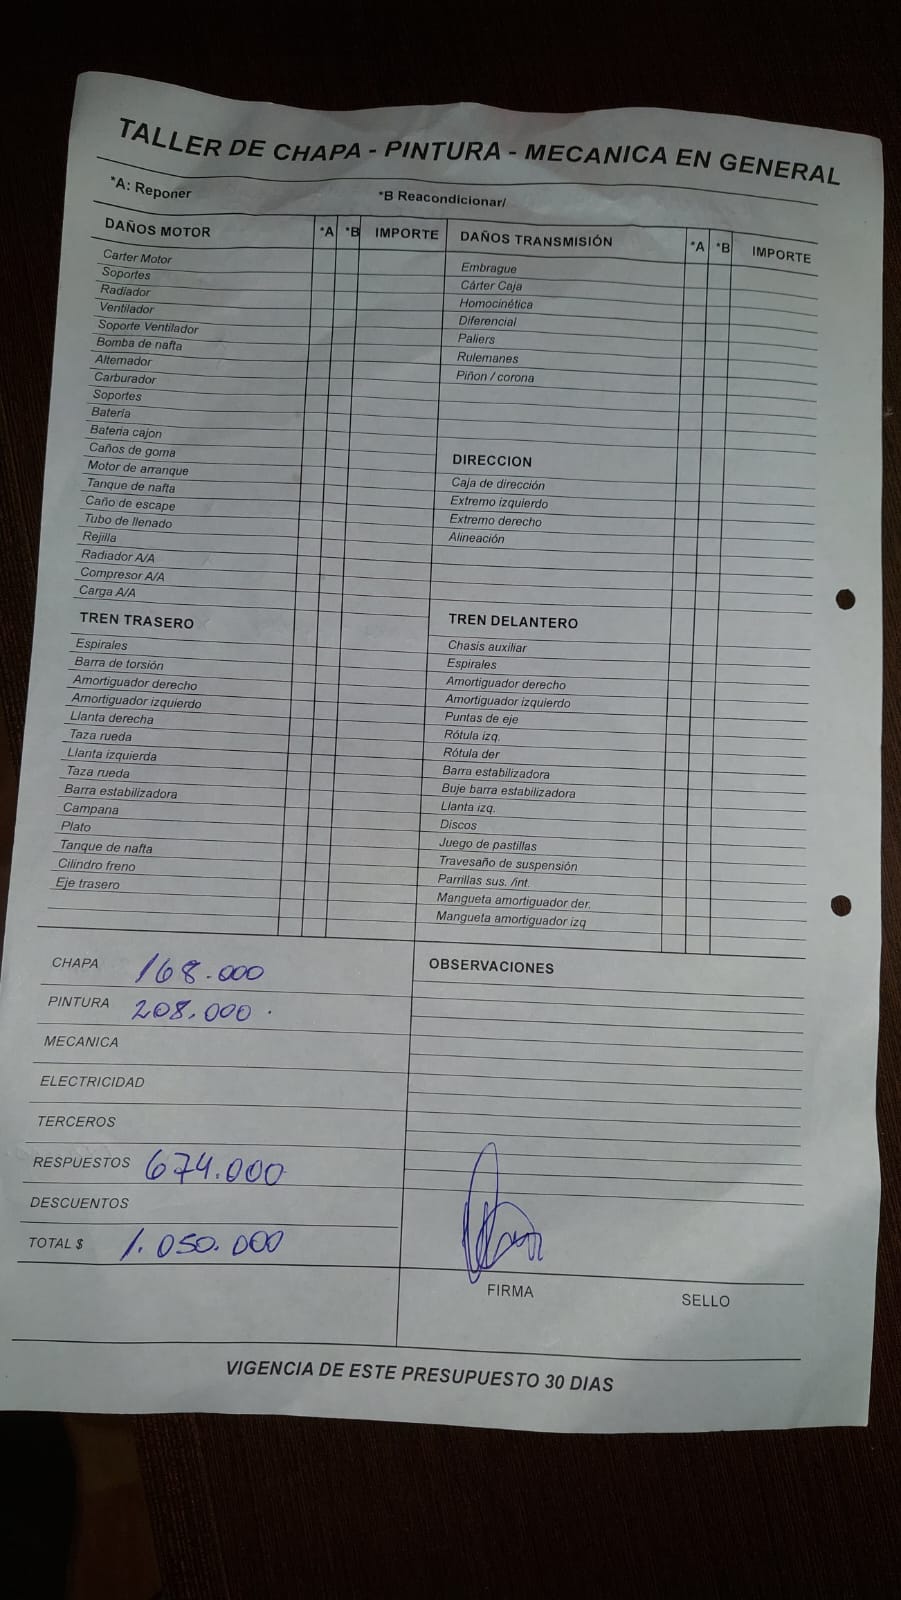 TALLER DE CHAPA - PINTURA - MECANICA EN GENERAL
*A: Reponer
*B Reacondicionar/
DAÑOS MOTOR *A *B IMPORTE
Carter Motor
Soportes
Radiador
Ventilador
Soporte Ventilador
Bomba de nafta
Alternador
Carburador
Soportes
Batería
Bateria cajon
Caños de goma
Motor de arranque
Tanque de nafta
Caño de escape
Tubo de llenado
Rejilla
Radiador A/A
Compresor A/A
Carga A/A
TREN TRASERO
Espirales
Barra de torsión
Amortiguador derecho
Amortiguador izquierdo
Llanta derecha
Taza rueda
Llanta izquierda
Taza rueda
Barra estabilizadora
Campana
Plato
Tanque de nafta
Cilindro freno
Eje trasero
DAÑOS TRANSMISIÓN *A *B IMPORTE
Embrague
Cárter Caja
Homocinética
Diferencial
Paliers
Rulemanes
Piñon / corona
DIRECCION
Caja de dirección
Extremo izquierdo
Extremo derecho
Alineación
TREN DELANTERO
Chasis auxiliar
Espirales
Amortiguador derecho
Amortiguador izquierdo
Puntas de eje
Rótula izq.
Rótula der
Barra estabilizadora
Buje barra estabilizadora
Llanta izq.
Discos
Juego de pastillas
Travesaño de suspensión
Parrillas sus. /int.
Mangueta amortiguador der.
Mangueta amortiguador izq
CHAPA 168.000
PINTURA 208.000.
MECANICA
ELECTRICIDAD
TERCEROS
RESPUESTOS 674.000
DESCUENTOS
TOTAL $ 1.050.000
OBSERVACIONES
FIRMA
SELLO
VIGENCIA DE ESTE PRESUPUESTO 30 DIAS